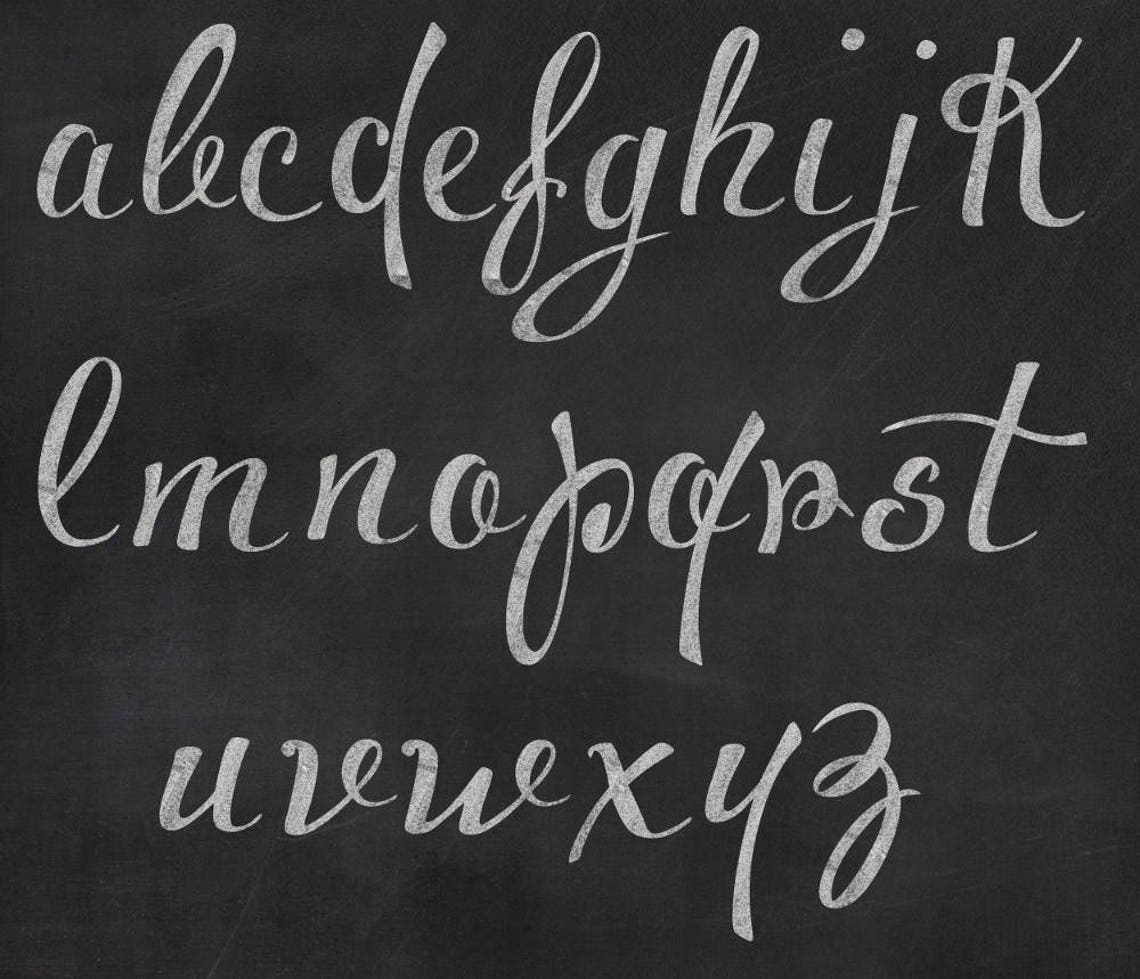 abcdefghijK
lmnopqrst
uvwxyz